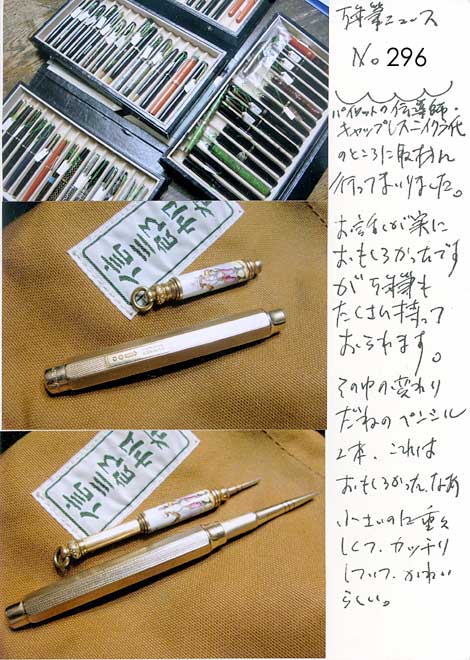 万年筆ニュース
No 296
パイロットの伝導師・
キャップレス二イクラ氏
のところに取材に
行ってまいりました。
お話しが実に
おもしろかったです
が万年筆も
たくさん持って
おられます。
その中の変わり
だねのペンシル
2本、これは
おもしろかったなあ
小さいのに重々
しくて、カッチリ
していて、かわい
らしい。